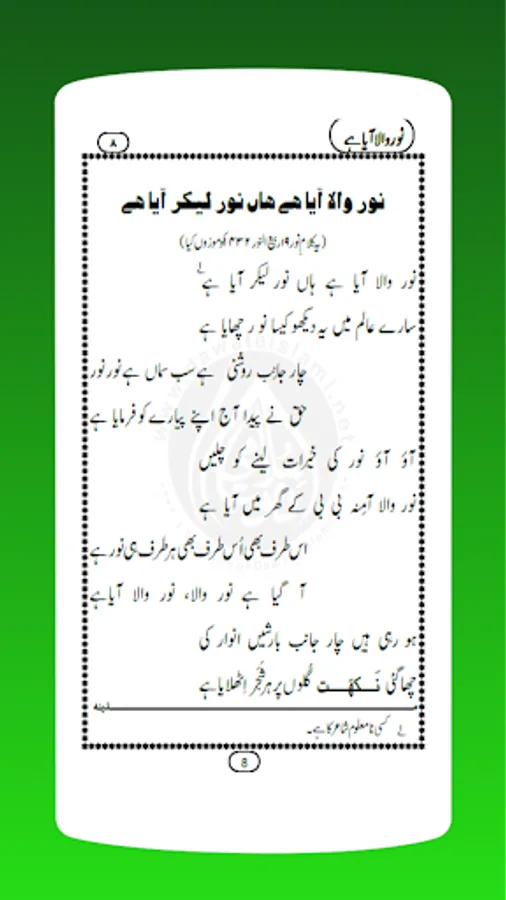 نور والا آیا ہے
۸
نور والا آیا ہے ہاں نور لیکر آیا ہے
(یہ کلام نور ۱۹ ربیع النور ۱۴۳۲ کو موزوں کیا)
نور والا آیا ہے ہاں نور لیکر آیا ہے ؎۱
سارے عالم میں یہ دیکھو کیسا نور چھایا ہے
چار جانب روشنی ہے سب سماں ہے نور نور
حق نے پیدا آج اپنے پیارے کو فرمایا ہے
آؤ آؤ نور کی خیرات لینے کو چلیں
نور والا آمِنہ بی بی کے گھر میں آیا ہے
اس طرف بھی اُس طرف بھی ہر طرف ہی نور ہے
آ گیا ہے نور والا، نور والا آیا ہے
ہو رہی ہیں چار جانب بارشیں انوار کی
چھا گئی نَکہَت گُلوں پر ہر شَجَر اِٹھلایا ہے
؎۱ کسی نامعلوم شاعر کا ہے۔
8
www.dawateislami.net